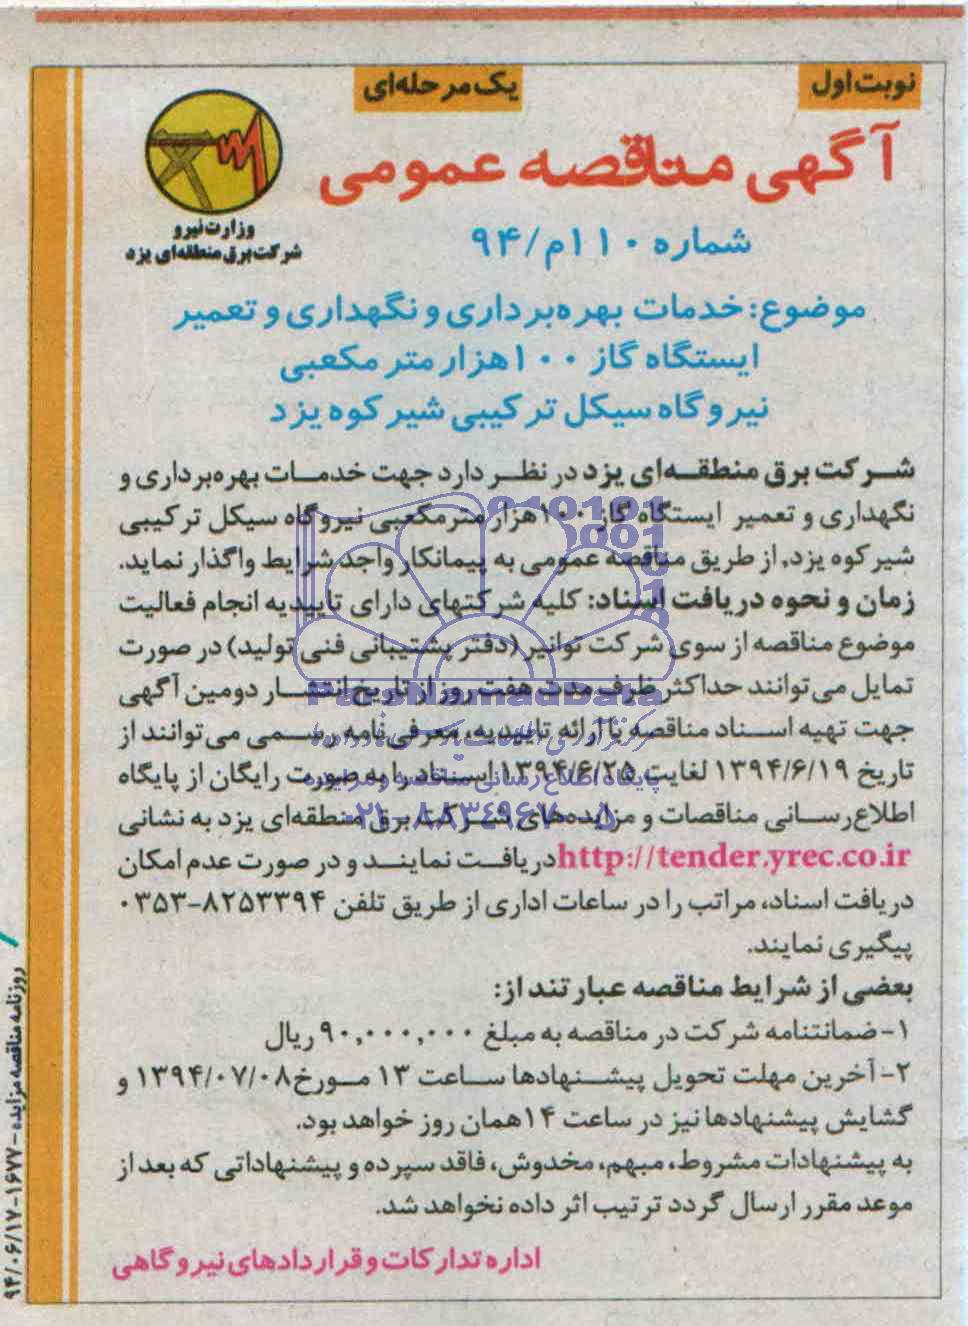 نوبت اول
یک مرحله‌ای
آگهی مناقصه عمومی
وزارت نیرو
شرکت برق منطقه‌ای یزد
شماره ۱۱۰م/۹۴
موضوع: خدمات بهره‌برداری و نگهداری و تعمیر
ایستگاه گاز ۱۰۰هزار متر مکعبی
نیروگاه سیکل ترکیبی شیرکوه یزد
شرکت برق منطقه‌ای یزد در نظر دارد جهت خدمات بهره‌برداری و
نگهداری و تعمیر ایستگاه گاز ۱۰۰هزار مترمکعبی نیروگاه سیکل ترکیبی
شیرکوه یزد، از طریق مناقصه عمومی به پیمانکار واجد شرایط واگذار نماید.
زمان و نحوه دریافت اسناد: کلیه شرکتهای دارای تاییدیه انجام فعالیت
موضوع مناقصه از سوی شرکت توانیر (دفتر پشتیبانی فنی تولید) در صورت
تمایل می‌توانند حداکثر ظرف مدت هفت روز از تاریخ انتشار دومین آگهی
جهت تهیه اسناد مناقصه با ارائه تاییدیه، معرفی‌نامه رسمی می‌توانند از
تاریخ ۱۳۹۴/۶/۱۹ لغایت ۱۳۹۴/۶/۲۵ اسناد را به صورت رایگان از پایگاه
اطلاع‌رسانی مناقصات و مزایده‌های شرکت برق منطقه‌ای یزد به نشانی
http://tender.yrec.co.ir دریافت نمایند و در صورت عدم امکان
دریافت اسناد، مراتب را در ساعات اداری از طریق تلفن ۸۲۵۳۳۹۴-۰۳۵۳
پیگیری نمایند.
بعضی از شرایط مناقصه عبارتند از:
۱- ضمانتنامه شرکت در مناقصه به مبلغ ۹۰,۰۰۰,۰۰۰ ریال
۲- آخرین مهلت تحویل پیشنهادها ساعت ۱۳ مورخ ۱۳۹۴/۰۷/۰۸ و
گشایش پیشنهادها نیز در ساعت ۱۴همان روز خواهد بود.
به پیشنهادات مشروط، مبهم، مخدوش، فاقد سپرده و پیشنهاداتی که بعد از
موعد مقرر ارسال گردد ترتیب اثر داده نخواهد شد.
اداره تدارکات و قراردادهای نیروگاهی
روزنامه مناقصه مزایده - ۱۶۷۷-۹۴/۰۶/۱۷
ParsNamadData
پایگاه اطلاع رسانی مناقصه و مزایده
۰۲۱-۸۸۳۴۹۶۷۰-۵